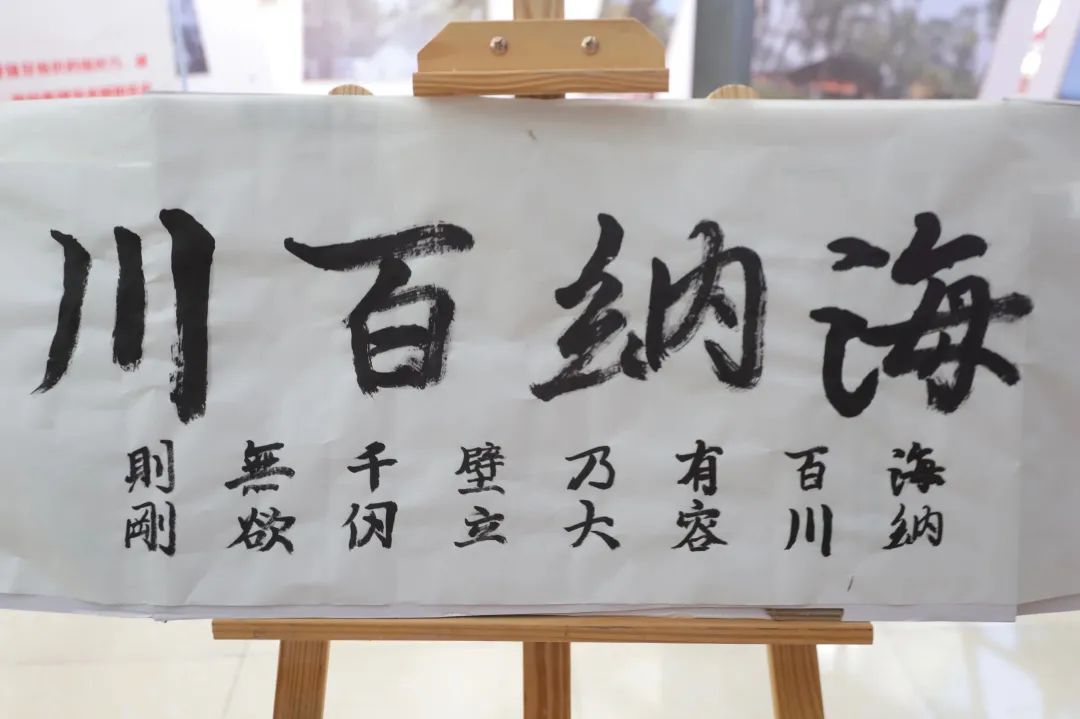 海纳百川
海纳
百川
有容
乃大
壁立
千仞
無欲
則剛